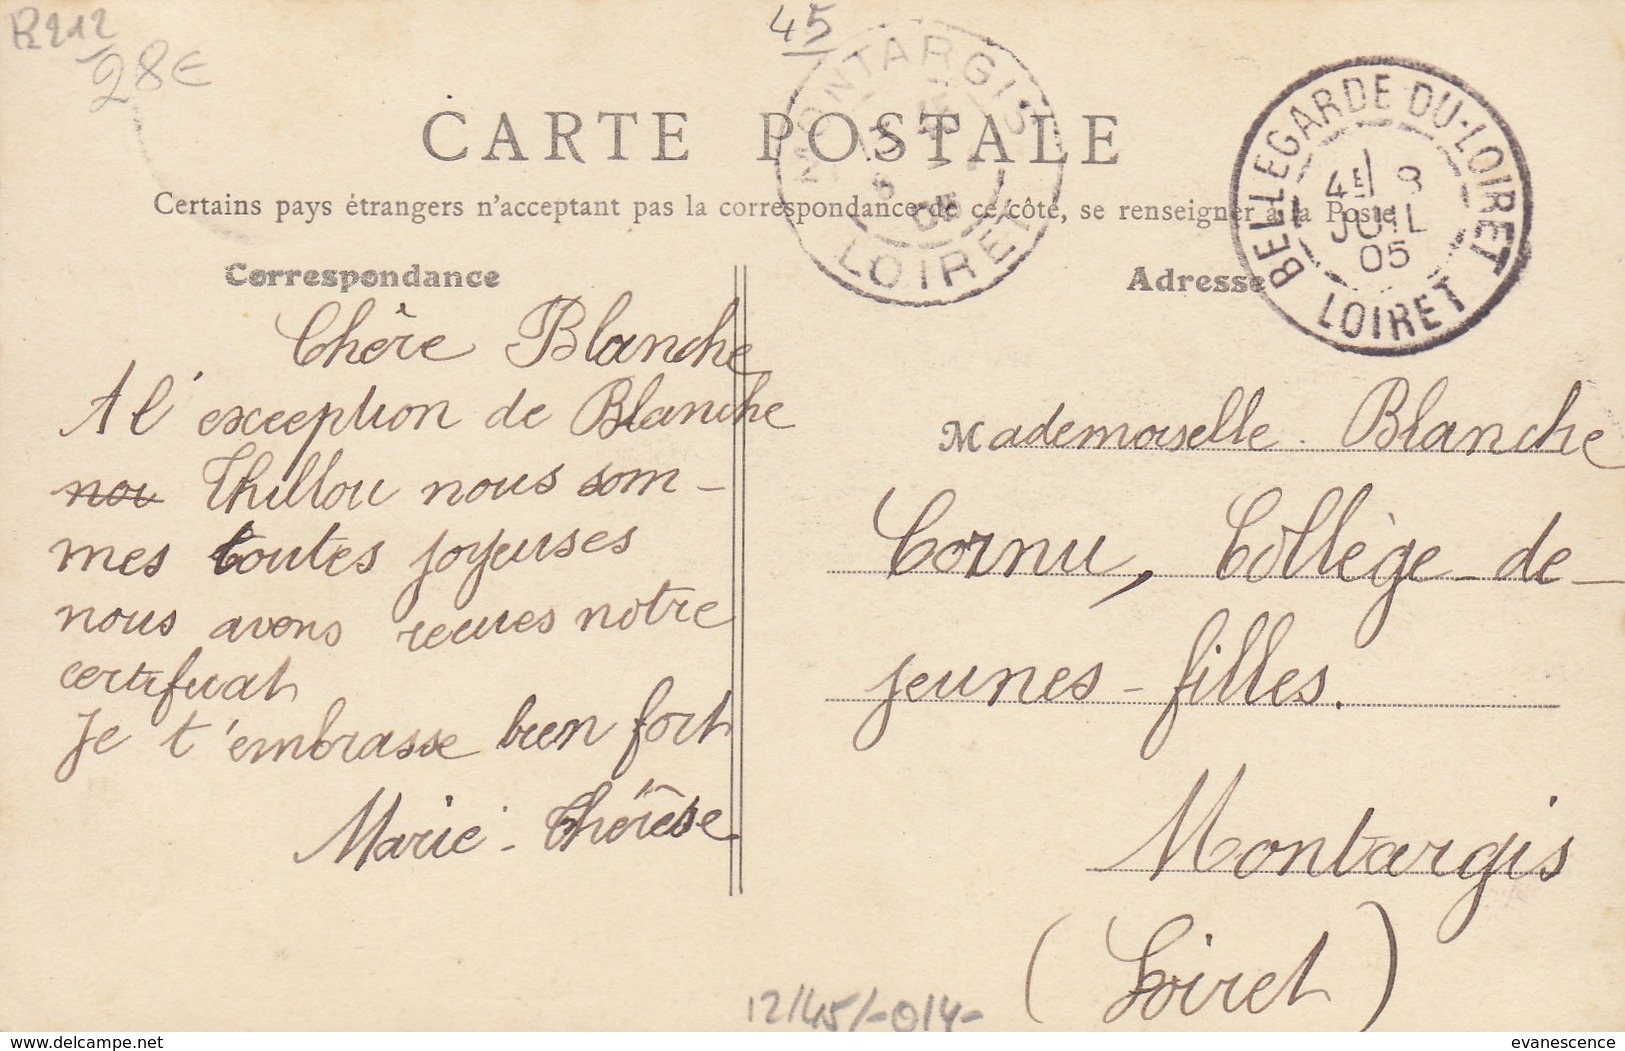 R212
28€
45
CARTE POSTALE
Certains pays étrangers n'acceptant pas la correspondance de ce côté, se renseigner à la Poste
MONTARGIS
05
LOIRET
BELLEGARDE-DU-LOIRET
4E 8
JUIL
05
LOIRET
Correspondance
Chère Blanche
A l'exception de Blanche
nou Thillou nous som-
mes toutes joyeuses
nous avons recues notre
certificat
Je t'embrasse bien fort
Marie-Thérèse
Adresse
Mademoiselle Blanche
Cornu, Collège-de-
jeunes-filles.
Montargis
(Loiret)
12/45/-014-
evanescence